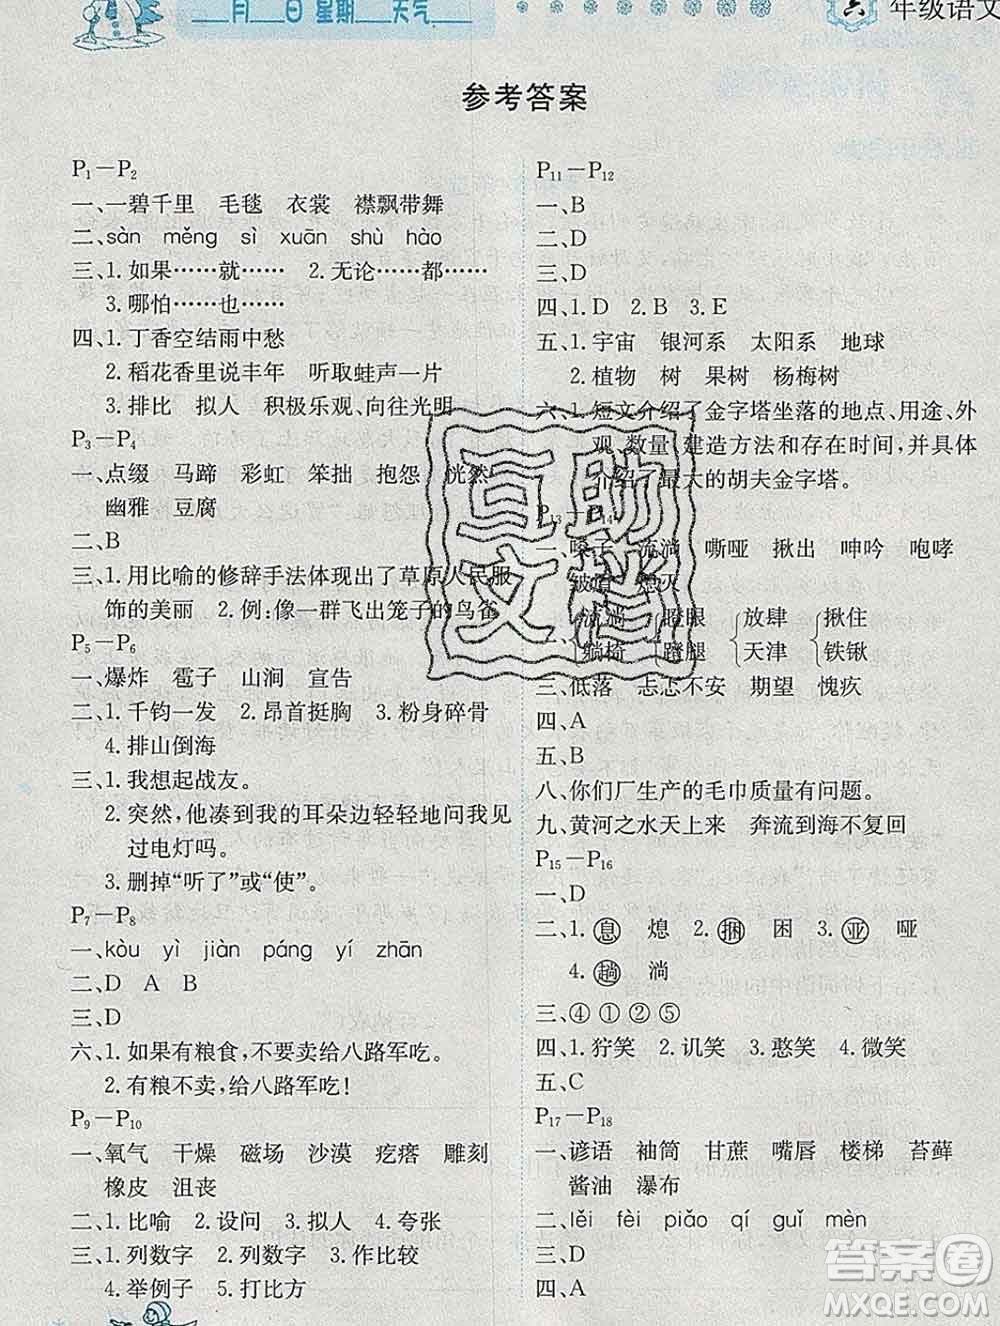 月 日 星期 天气
六 年级语文
参考答案
P1－P2
一、一碧千里 毛毯 衣裳 襟飘带舞
二、sàn měng sì xuān shù hào
三、1. 如果……就…… 2. 无论……都……
3. 哪怕……也……
四、1. 丁香空结雨中愁
2. 稻花香里说丰年 听取蛙声一片
3. 排比 拟人 积极乐观、向往光明
P3－P4
一、点缀 马蹄 彩虹 笨拙 抱怨 恍然
幽雅 豆腐
二、B
三、1. 用比喻的修辞手法体现出了草原人民服
饰的美丽 2. 例：像一群飞出笼子的鸟雀
P5－P6
一、爆炸 雹子 山涧 宣告
二、1. 千钧一发 2. 昂首挺胸 3. 粉身碎骨
4. 排山倒海
三、1. 我想起战友。
2. 突然，他凑到我的耳朵边轻轻地问我见
过电灯吗。
3. 删掉“听了”或“使”。
P7－P8
一、kòu yì jiàn páng yí zhān
二、D A B
三、D
六、1. 如果有粮食，不能卖给八路军吃。
2. 有粮不卖，给八路军吃！
P9－P10
一、氧气 干燥 磁场 沙漠 疙瘩 雕刻
橡皮 沮丧
二、1. 比喻 2. 设问 3. 拟人 4. 夸张
三、1. 列数字 2. 列数字 3. 作比较
4. 举例子 5. 打比方
P11－P12
一、B
二、D
三、D
四、1. D 2. B 3. E
五、1. 宇宙 银河系 太阳系 地球
2. 植物 树 果树 杨梅树
六、1. 短文介绍了金字塔坐落的地点、用途、外
观、数量、建造方法和存在时间，并具体
介绍了最大的胡夫金字塔。
P13－P14
一、嗓子 流淌 嘶哑 揪出 呻吟 咆哮
破 熄灭
二、流淌 瞪眼 放肆 揪住
躺椅 蹬腿 天津 铁锹
三、低落 忐忑不安 期望 愧疚
四、A
五、B
八、你们厂生产的毛巾质量有问题。
九、黄河之水天上来 奔流到海不复回
P15－P16
一、D
二、1. 息 熄 2. 捆 困 3. 亚 哑
4. 趟 淌
三、④ ① ② ⑤
四、1. 狞笑 2. 讥笑 3. 憨笑 4. 微笑
五、C
P17－P18
一、谚语 袖筒 甘蔗 嘴唇 楼梯 苔藓
酱油 瀑布
二、lěi fèi piǎo qí guǐ mèn
三、D
四、A
互助
文档
答案圈
MXQE.COM